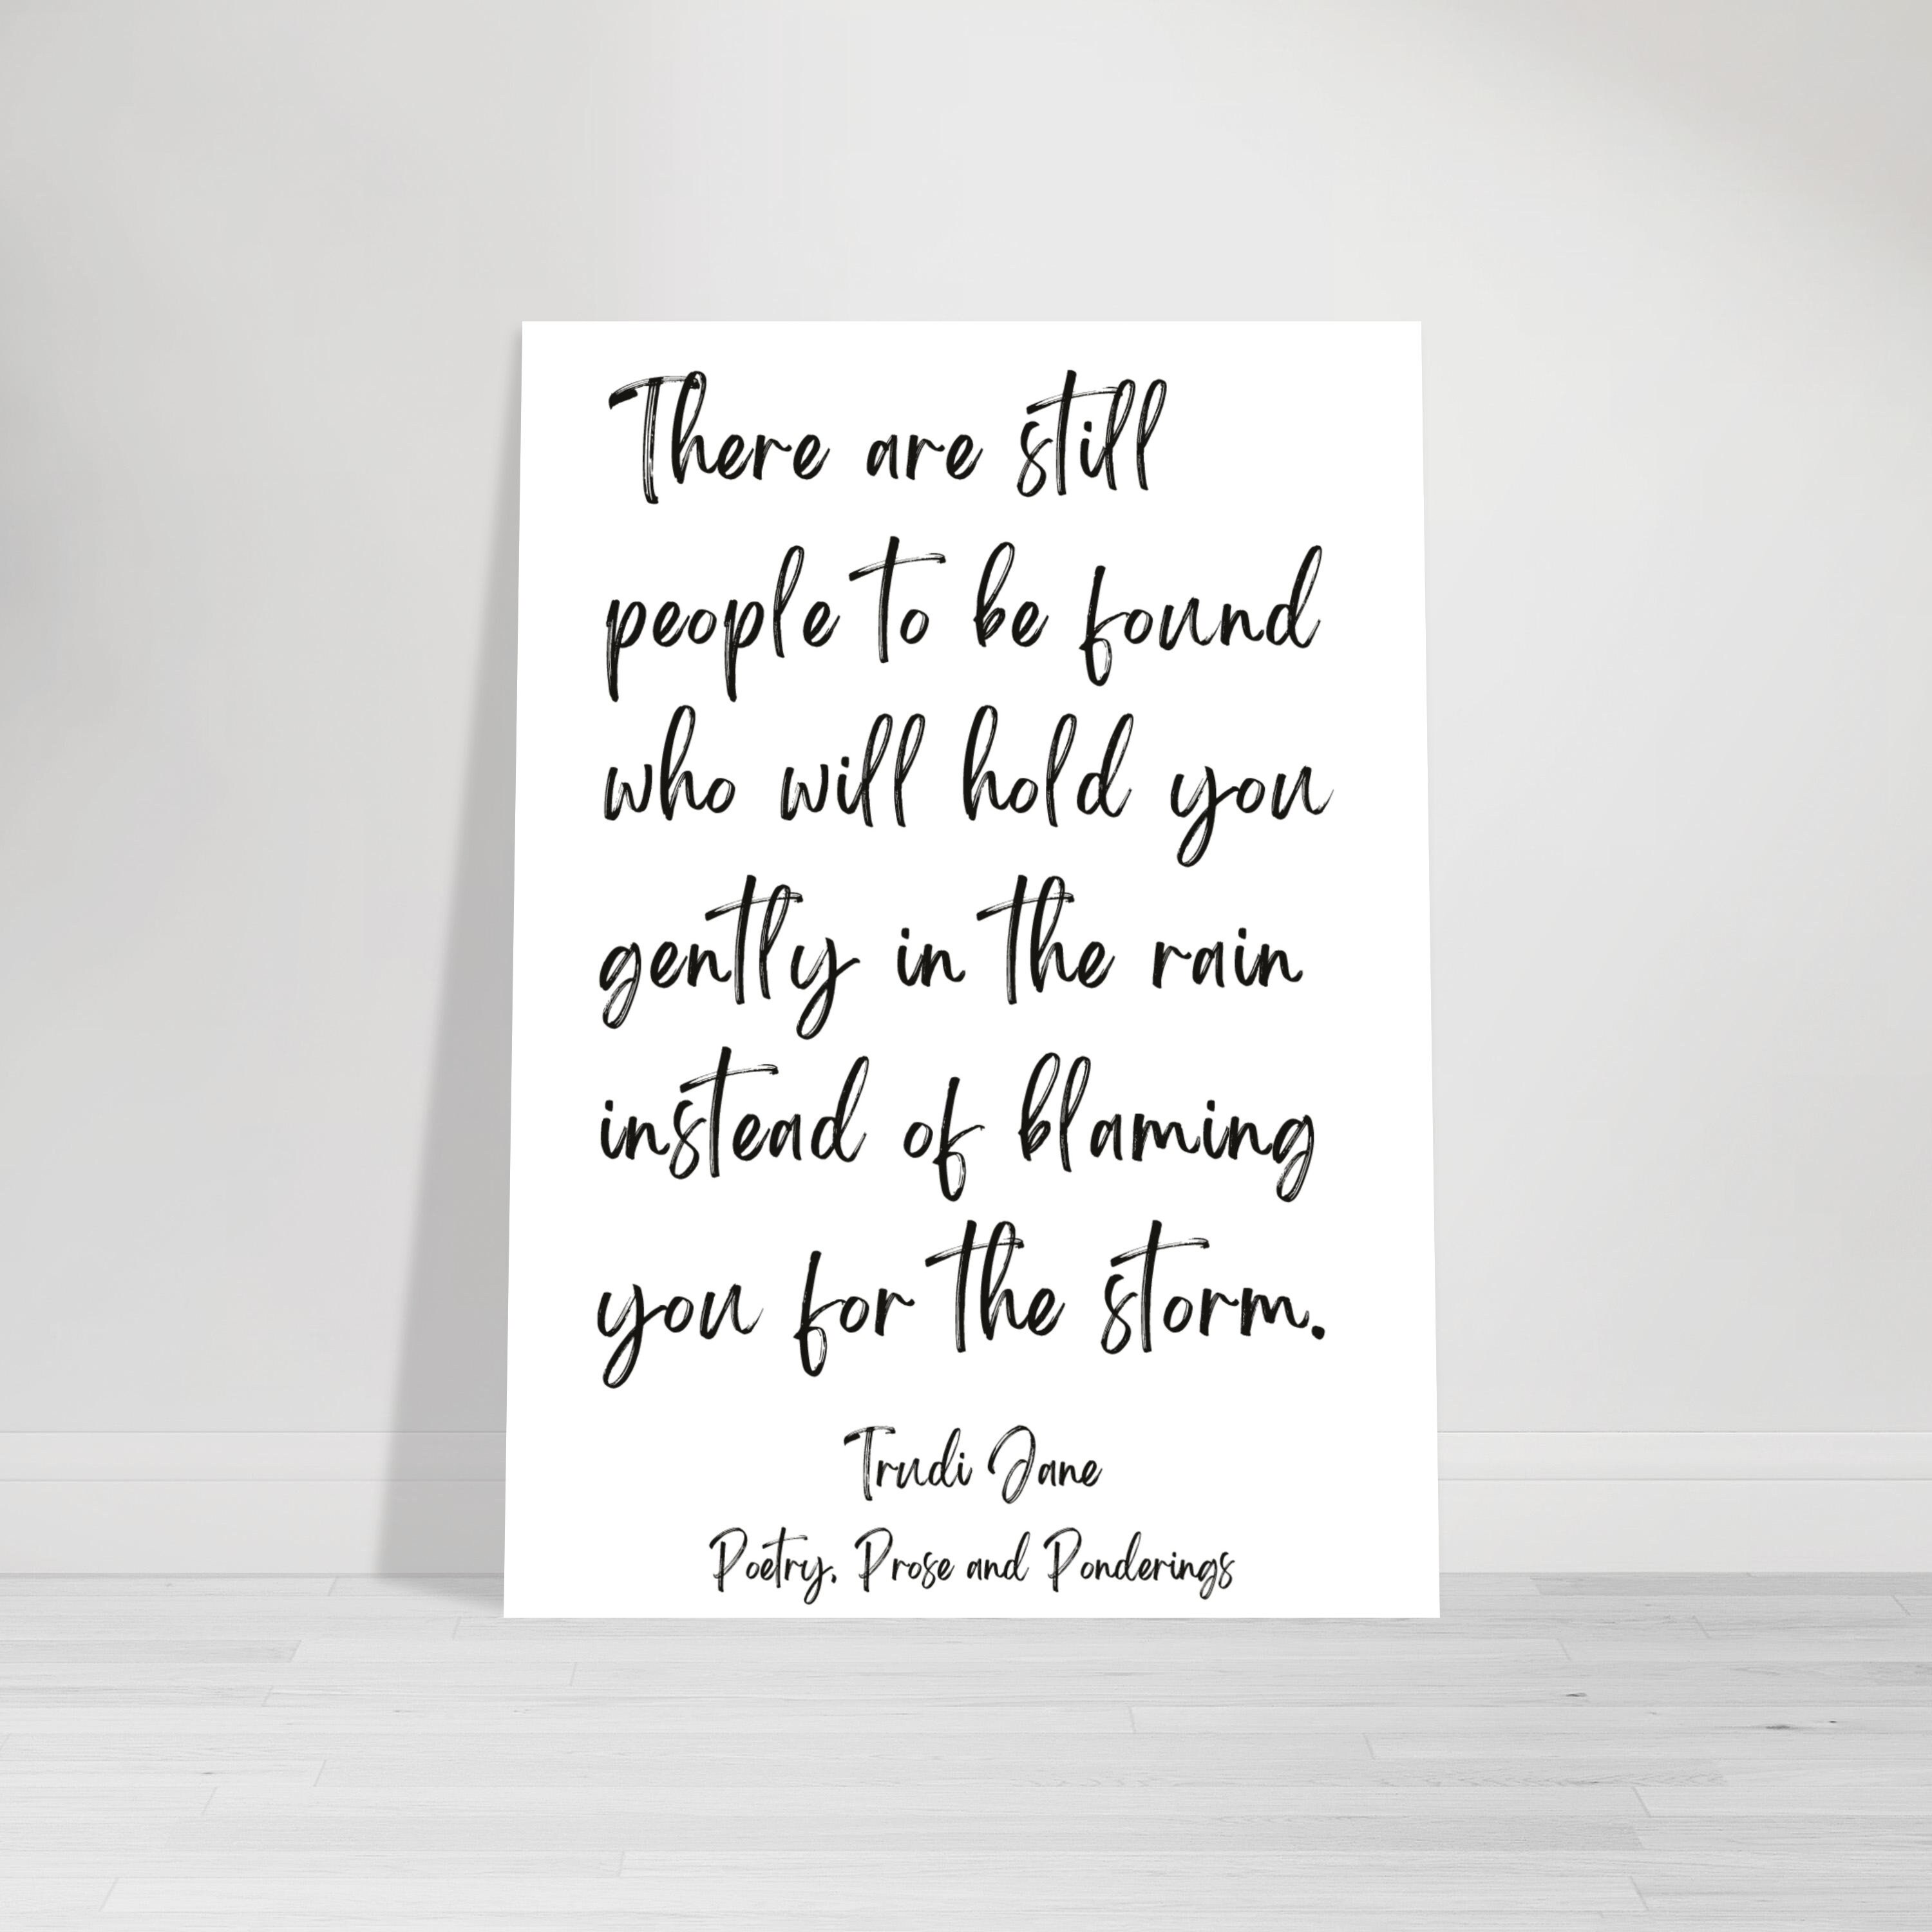 There are still
people to be found
who will hold you
gently in the rain
instead of blaming
you for the storm.
Trudi Jane
Poetry, Prose and Ponderings